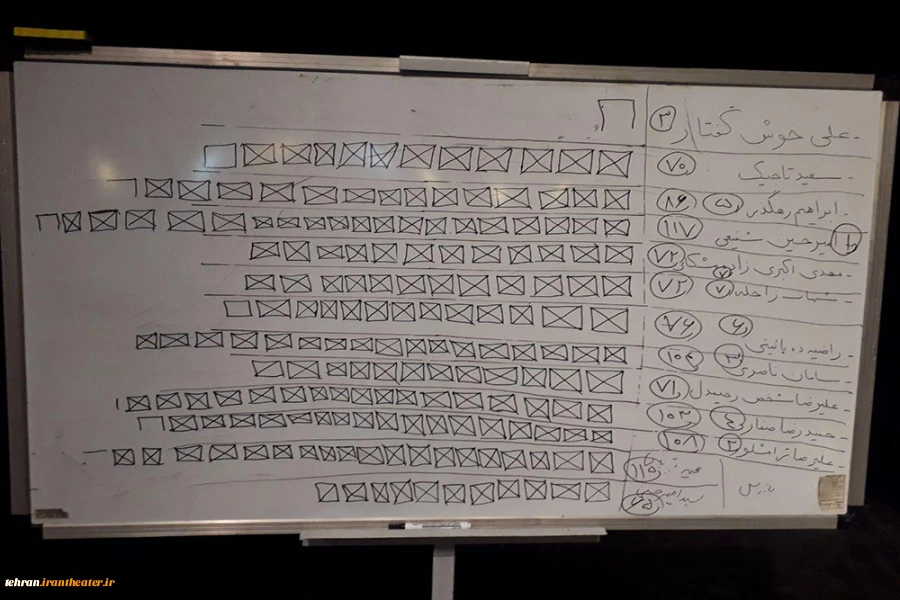 - علی خوش گفتار ۳
- سعید تاجیک ۷۰
- ابراهیم رهگذر ۵ ۸۶
امیرحسین شفیعی ۱ ۱۱۷
- مهدی اکبری ۷۲
- شهاب راحله ۷ ۷۲
- راضیه ده بائینی ۶ ۷۶
- سامان ناصری ۳ ۱۰۴
- علیرضا شخص ۷۱
- حمیدرضا صفار ۴ ۱۰۳
- علیرضا ترامشلو ۲ ۱۰۸
بازرس
۱۱۵
tehran.irantheater.ir